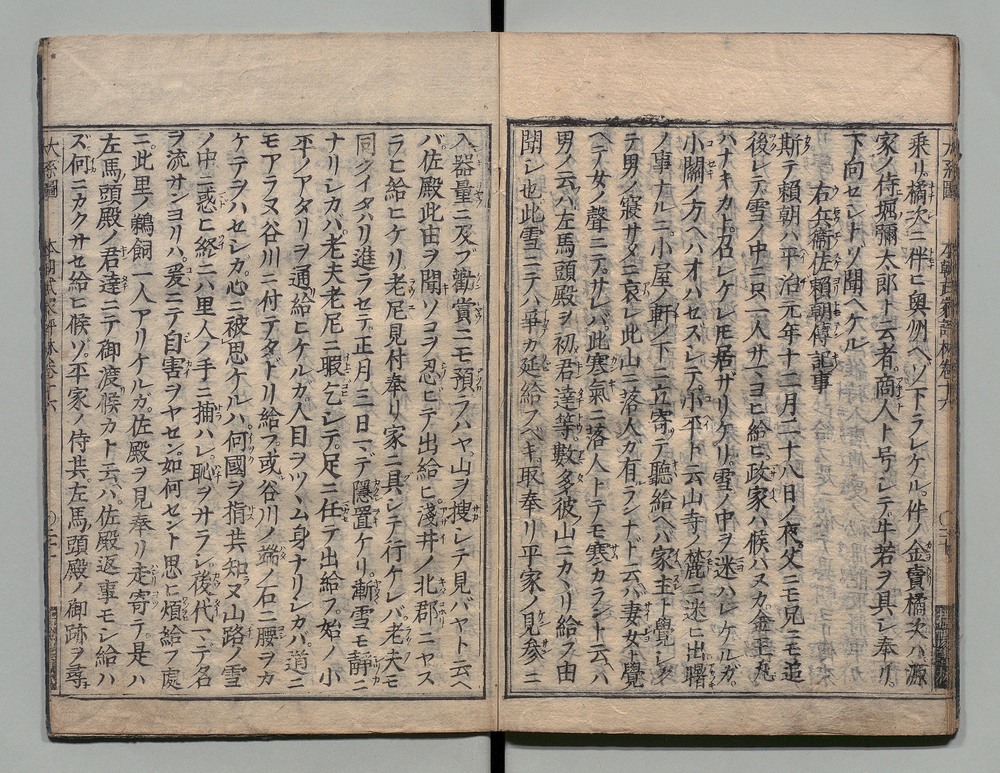 乗リ橘次ニ伴ヒ奥州ヘゾ下ラレケル件ノ金賣橘次ハ源
家ノ侍堀彌大郎ト云者商人ト号シテ牛若ヲ具シ奉リ
下向セシトソ聞ヘケル
右兵衞佐賴朝傳記事
斯テ賴朝ハ平治元年十二月二十八日ノ夜父ニモ兄ニモ追
後レテ雪ノ中ニ只一人サマヨヒ給ヒ政家ハ候ハヌカ金王丸
ハナキカト召レケレモ居ザリケリ雪ノ中ヲ迷ハレケルガ
小關ノ方ヘハオハセスシテ小平ト云山寺ノ麓ニ迷ヒ出曙
ノ事ナルニ小屋ノ軒ノ下ニ立寄テ聽給ヘバ家主ト覺シク
テ男ノ寢サメニ哀レ此山ニ落人カ有ラントト云バ妻女ト覺
ヘテ女ノ聲ニテサレバ此寒氣ニ落人トテモ寒カラント云ハ
男ノ云ハ左馬頭殿ヲ初君達等數多彼山ニカヽリ給フ由
聞シ也此雪ニテハ爭カ延給フベキ取奉リ平家ノ見參ニ
入器量ニ及ブ勸賞ニモ預ラハヤ山ヲ搜シテ見バヤト云ヘ
バ佐殿此由ヲ聞ソコヲ忍ヒテ出給ヒ淺井ノ北郡ニヤス
ラヒ給ヒケリ老尼見付奉リ家ニ具シテ行ケレバ老夫モ
同クイタハリ進ラセテ正月三日マデ隱置ケリ漸雪モ靜ニ
ナリシカバ老夫老尼ニ暇乞シテ足ニ任テ出給フ始ノ小
平ノアタリヲ通給ヒケルカ人目ヲツヽム身ナリシカバ道ニ
モアラヌ谷川ニ付テタドリ給フ或谷川ノ端ノ石ニ腰ヲカ
ケテヲハセシガ心ニ被思ケルハ何國ヲ指共知ヌ山路ノ雪
ノ中ニ惑ヒ終ニ八里人ノ手ニ捕ハレ恥ヲサラシ後代マデ名
ヲ流サンヨリハ爰ニテ自害ヲヤセン如何セント思ヒ煩給フ處
ニ此里ノ鵜飼一人アリケルガ佐殿ヲ見奉リ走寄テ是ハ
左馬頭殿ノ君達ニテ御渡候カト云バ佐殿返事モシ給ハ
ズ何ニカクサセ給ヒ候ゾ平家ノ侍共左馬頭殿ノ御跡ヲ尋